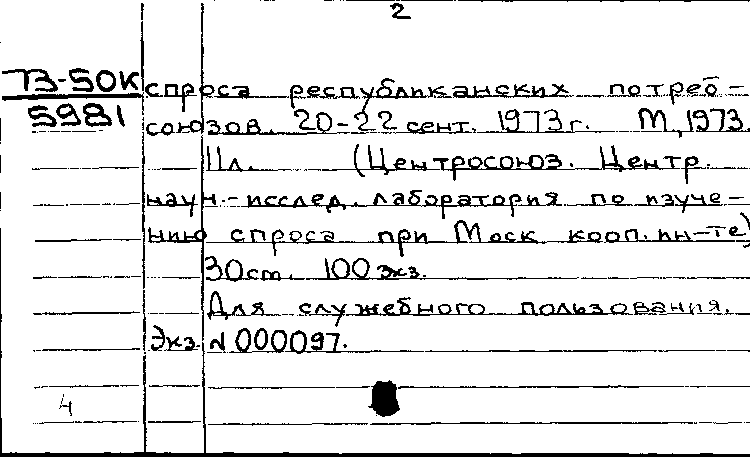 2
73-50к спроса республиканских потреб-
5981 союзов. 20-22 сент. 1973г. М, 1973.
11л. (Центросоюз. Центр.
науч.-исслед. лаборатория по изуче-
нию спроса при Моск кооп. ин-те)
30ст. 100 экз.
Для служебного пользования.
Экз. N 000097.
4